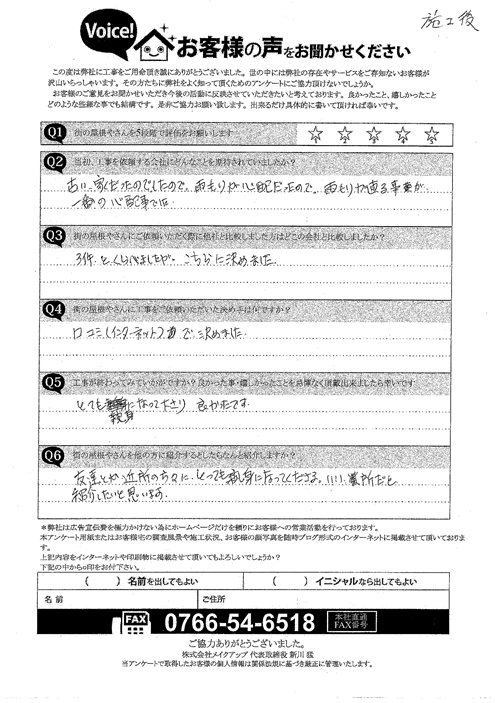 施工後
Voice!
お客様の声をお聞かせください
この度は弊社に工事をご用命頂き誠にありがとうございました。世の中には弊社の存在やサービスをご存知ないお客様が
沢山いらっしゃいます。その方たちに弊社をよく知って頂くためのアンケートにご協力頂けないでしょうか。
お客様のご意見をお聞かせいただき今後の活動に反映させていただきたいと考えております。良かったこと、嬉しかったこと
どのような些細な事でも結構です。是非ご協力お願い致します。出来るだけ具体的に書いて頂ければ幸いです。
Q1 街の屋根やさんを5段階で評価をお願いします ☆ ☆ ☆ ☆ ☆
Q2 当初、工事を依頼する会社にどんなことを期待されていましたか?
古い家だったのでしたので、雨もりが心配だったので、雨もりが直る事が
一番の心配事でした
Q3 街の屋根やさんにご依頼いただく際に他社と比較しました方はどこの会社と比較しましたか?
3件とくらべましたが、こちらに決めました
Q4 街の屋根やさんに工事をご依頼いただいた決め手は何ですか?
口コミ(インターネット)で決めました
Q5 工事が終わってみていかがですか?良かった事・嬉しかったことを忌憚なく頂戴出来ましたら幸いです
とても親身になって下さり 良かったです。
Q6 街の屋根やさんを他の方に紹介するとしたらなんと紹介しますか?
友達とか近所の方々に、とっても親身になってくださる。いい業所だと
紹介したいと思います。
*弊社は広告宣伝費を極力かけない為にホームページだけを頼りにお客様への営業活動を行っております。
本アンケート用紙またはお客様宅の調査風景や施工状況、お客様の顔写真を随時ブログ形式のインターネットに掲載させて頂いておりま
す。
上記内容をインターネットや印刷物に掲載させて頂いてもよろしいでしょうか?
下記の中から○印をお付下さい。
( )名前を出してもよい ( )イニシャルなら出してもよい
名前 ご住所
FAX 0766-54-6518 本社直通 FAX番号
ご協力ありがとうございました。
株式会社メイクアップ 代表取締役 新川 猛
当アンケートで取得したお客様の個人情報は関係法規に基づき厳正に管理いたします。